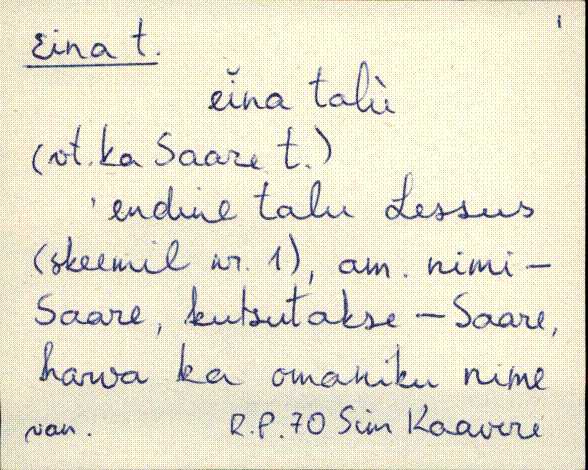 1
Eina t.
eĭna talù
(vt. ka Saare t.)
'endine talu Lessus
(skeemil nr. 1), am. nimi –
Saare, kutsutakse – Saare,
harva ka omaniku nime
van. R.P.70 Sim Kaavere